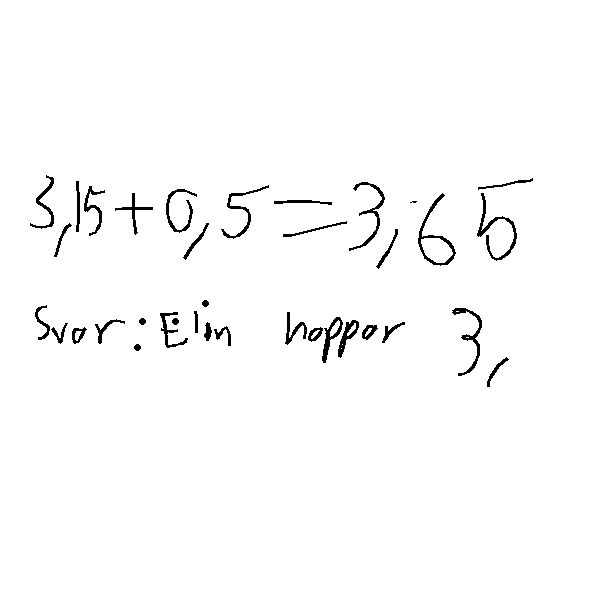 3,15+0,5=3,65
Svar: Elin hoppar 3,